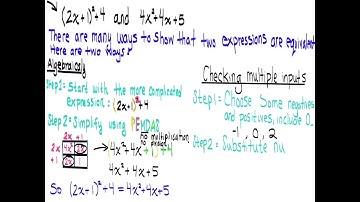 (2x+1)²+4 and 4x²+4x+5
There are many ways to show that two expressions are equivalent
Here are two ways:
Algebraically
Step 1 = Start with the more complicated
expression: (2x+1)²+4
Step 2 = Simplify using PEMDAS
no multiplication
no division
2x +1
2x 4x² 2x
+1 2x 1
(4x²+4x+1)+4
4x²+4x+5
So (2x+1)²+4 = 4x²+4x+5
Checking multiple inputs
Step 1 = Choose Some negatives
and positives, include 0,
-1, 0, 2
Step 2 = Substitute nu